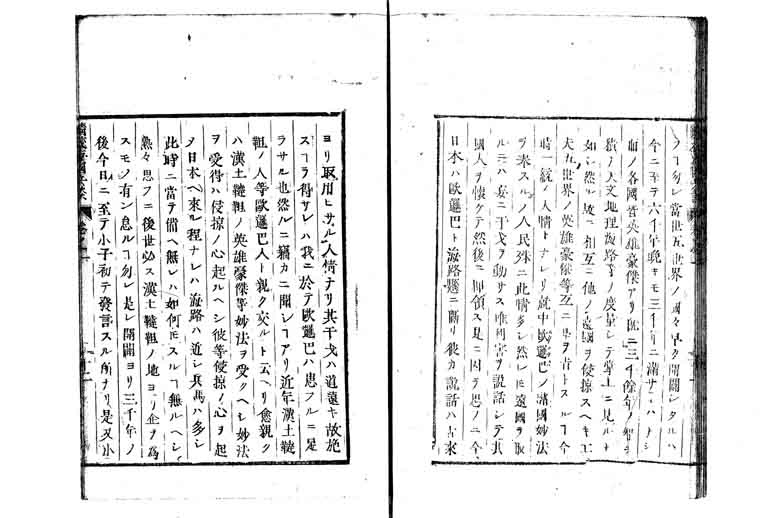 フヿ勿レ當世五世界ノ國々早ク開闢シタルハ
今ニ至テ六千年晩キモ三千年ニ滿サルハナシ
而ノ各國皆英雄豪傑アリ既ニ三千餘年ノ智ヲ
積ノ人文地理海路等ノ度量シテ掌上ニ見ルカ
如シ然ル故ニ相互ニ他ノ遠國ヲ侵掠スヘキヿ
夫五世界ノ英雄豪傑等互ニ是ヲ旨トスルヿ今
時一統ノ人情トナレリ就中歐邏巴ノ諸國妙法
ヲ来スルノ人民殊ニ此情多シ然レ𪜈遠國ヲ取
ルハ妄ニ干戈ヲ動サス唯利害ヲ説話シテ其
國人ヲ懷ケテ然後ニ押領ス是ニ因テ思フニ今
日本ハ歐邏巴ト海路遥ニ隔リ彼カ説話ハ古來
ヨリ取用ヒサル人情ナリ其干戈ハ道遠キ故施
スヿヲ得サレハ我ニ於テ歐邏巴ハ患フルニ足
ラサル也然ルニ竊カニ聞レヿアリ近年漢土韃
靼ノ人等歐邏巴人ト親ク交ルト云ヘリ愈親ク
ハ漢土韃靼ノ英雄豪傑等妙法ヲ受クヘシ妙法
ヲ受得ハ侵掠ノ心起ルヘシ彼等侵掠ノ心ヲ起
タ日本ヘ來ル程ナレハ海路ハ近シ兵馬ハ多シ
此時ニ當テ備ヘ無レハ如何モスルヿ無ルヘシ
熟々思フニ後世必ス漢土韃靼ノ地ヨリ企ヲ為
スモノ有ン怠ルヿ勿レ是レ開闢ヨリ三千年ノ
後今日ニ至テ小子初テ發言スル所ナリ是又小